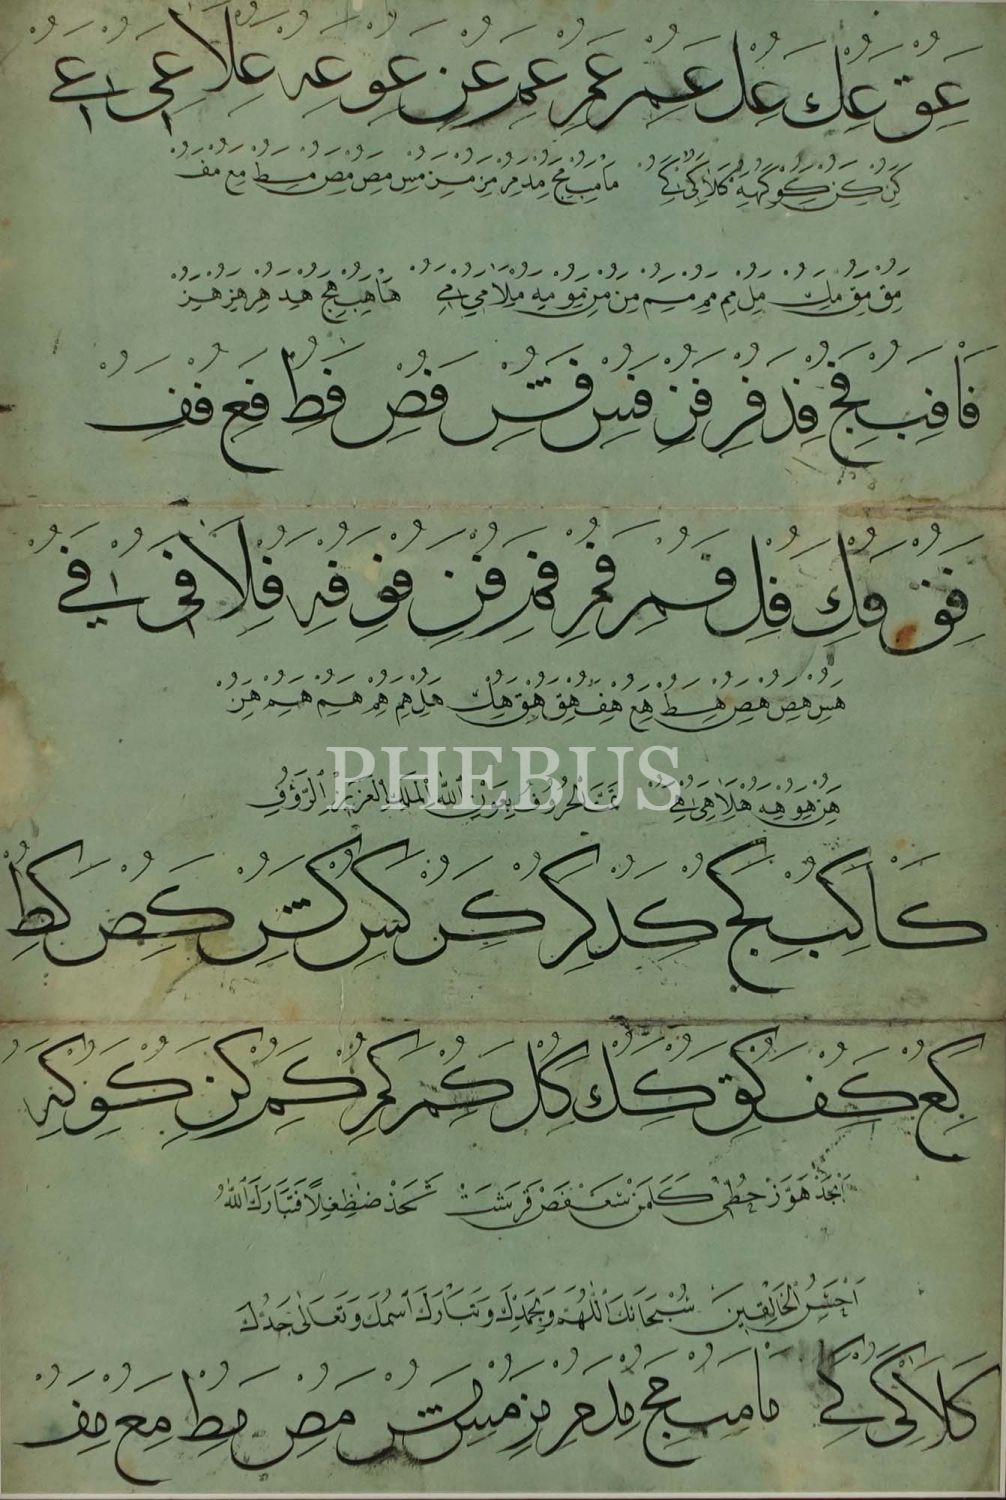 عق عك عل عم عمر عمر عن عو عه علا عى ء عے
كن كن كو كهه كلا كى ء كے ما مب مج مد مر مز من مس مص مص مط مع مف
مق مق مك مل مم مم مم من من مو مه ملا مى ء مے ها هب هج هد هر هز هز
فا فب فج فد فر فز فس فش فص فط فع فف
فق فك فل فم فمر فمر فن فو فه فلا فى ء فے
هس هص هص هط هع هف هق هق هك هل هم هم هم هم هن
هن هو هه هلا هى ء هے تمت الحروف بعون الله الملك العزيز الرؤف
PHEBUS
كا كب كج كد كر كز كس كش كص كط
كع كف كق كك كل كم كمر كم كن كو كه
ابجد هوز حطى كلمن سعفص قرشت ثخذ ضظغلا فتبارك الله
احسن الخالقين سبحانك اللهم وبحمدك وتبارك اسمك وتعالى جدك
كلا كى كے ما مب مج مد مر مز مس مش مص مط مع مف